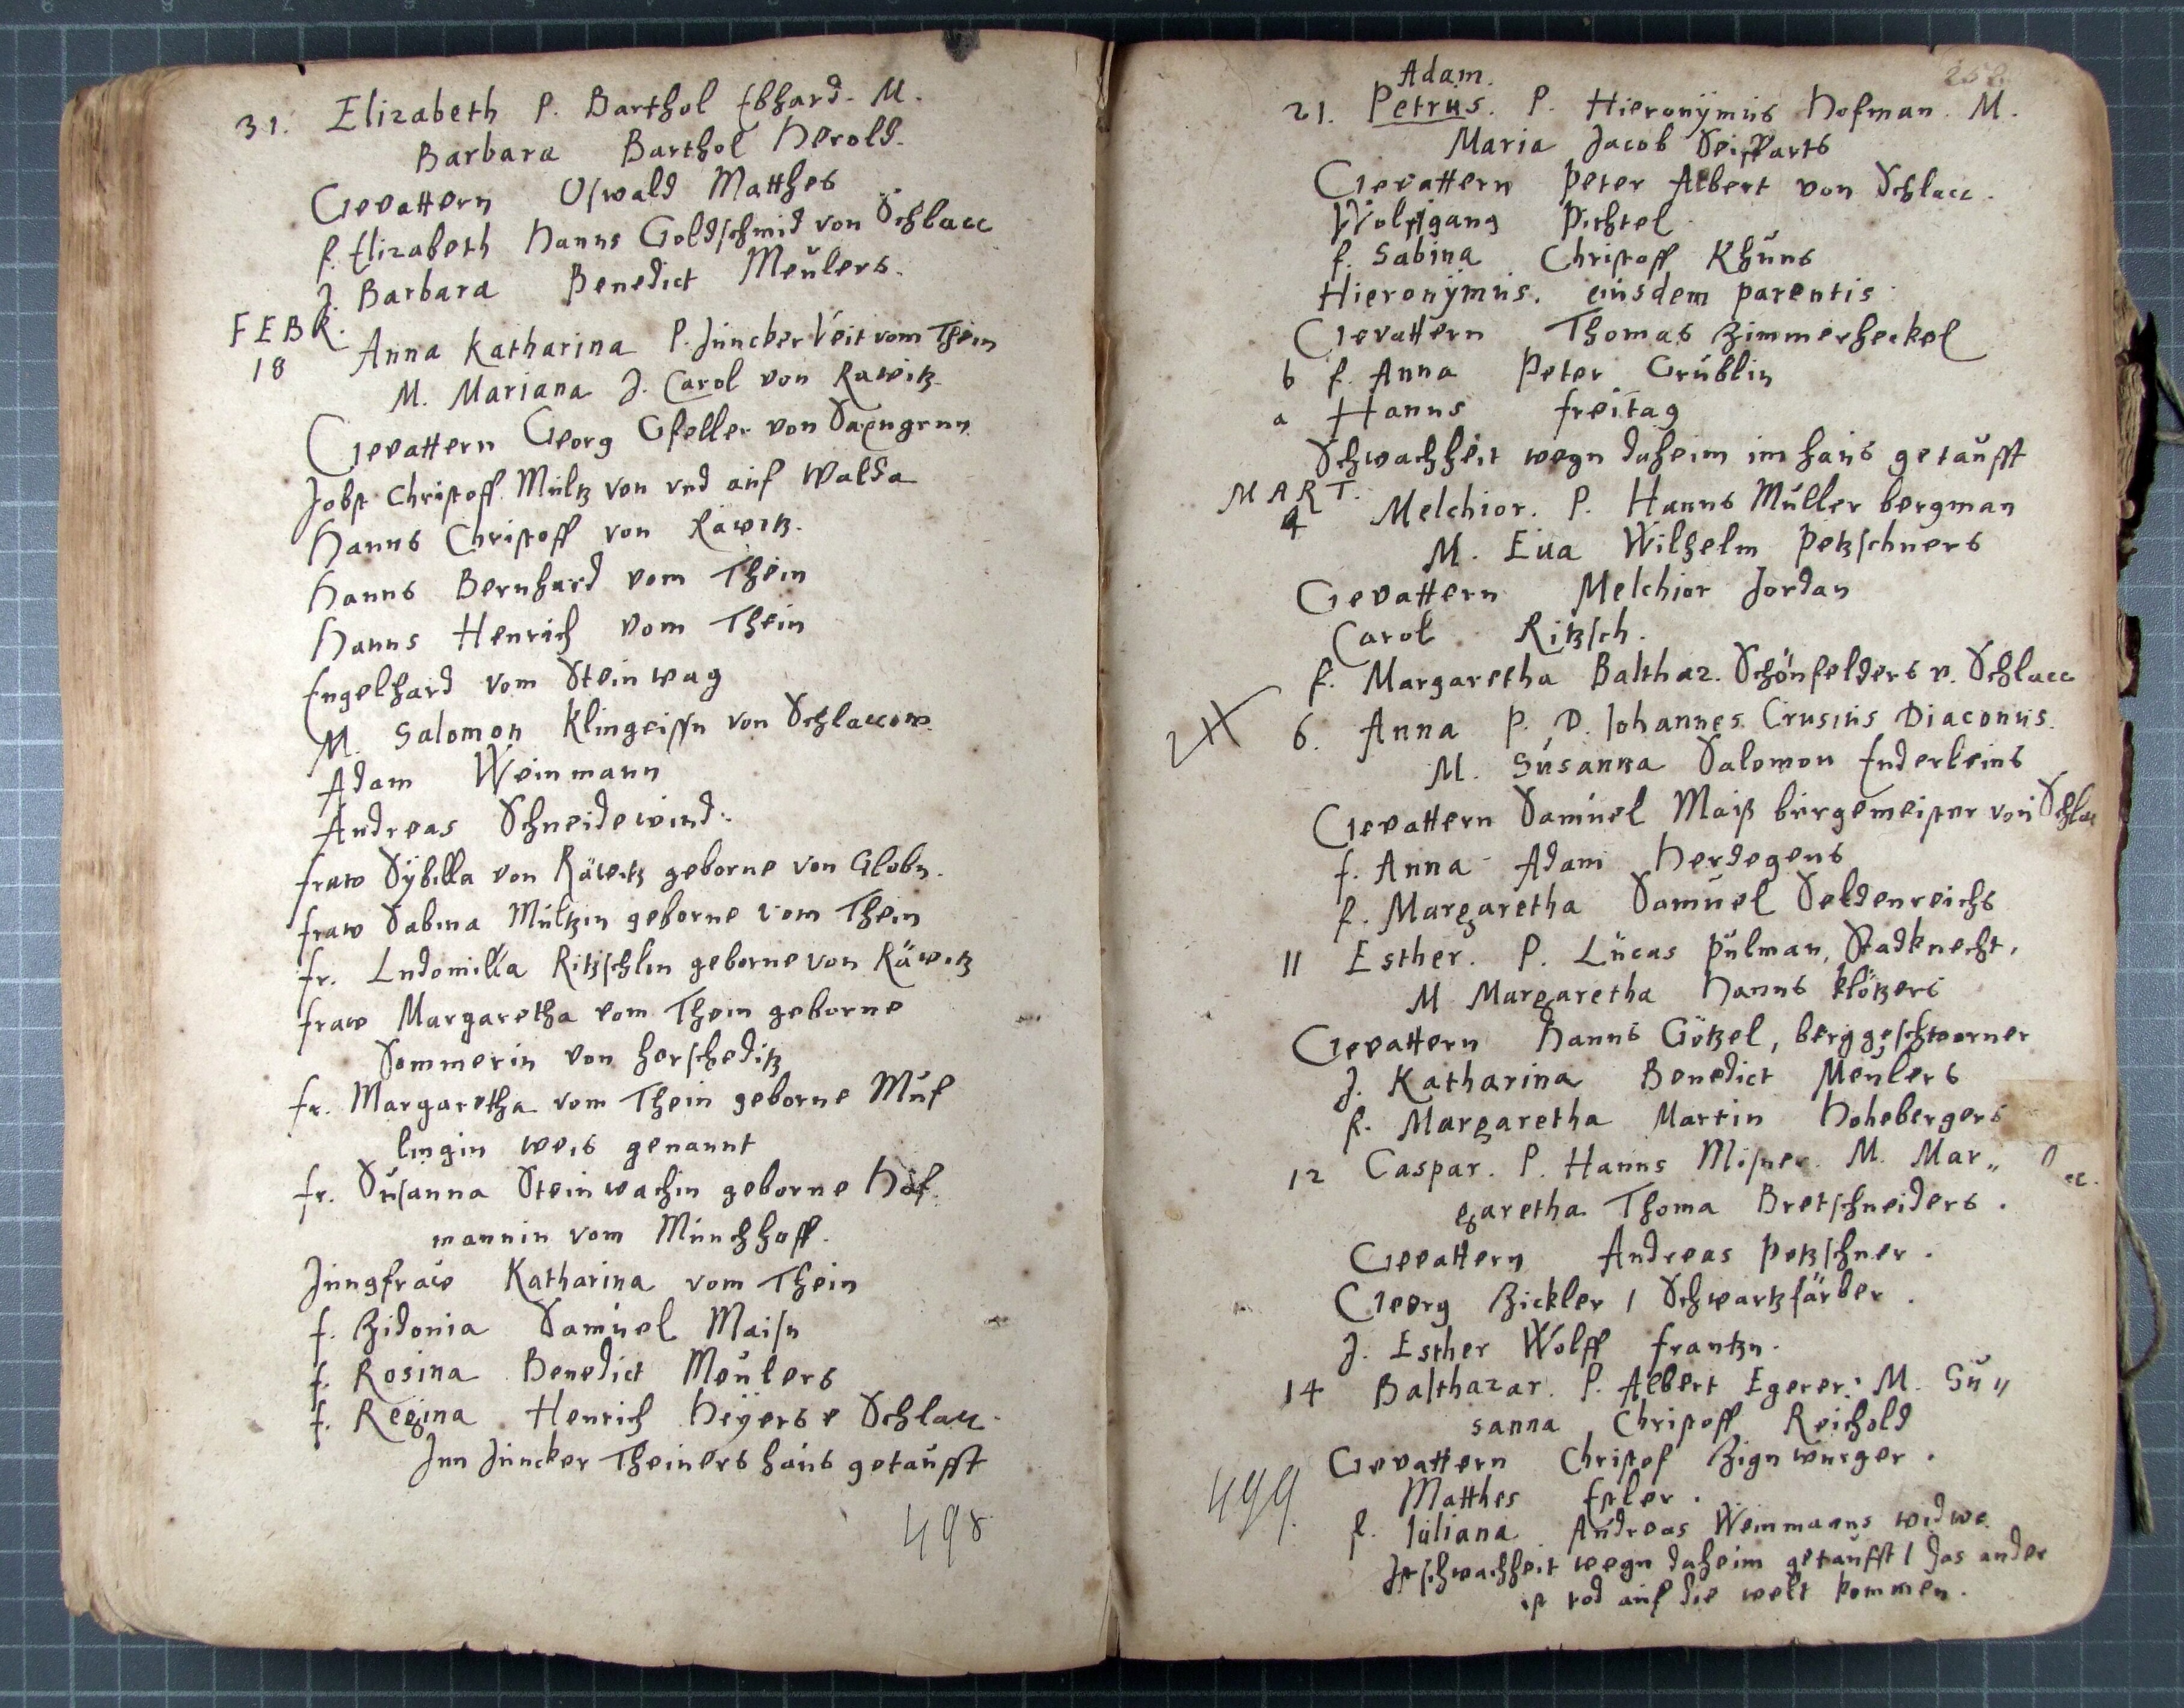 31. Elizabeth P. Barthol Ebhard. M.
Barbara Barthol Herold.
Gevattern Oswald Matthes
f. Elizabeth Hanns Goldschmid von Schlacc
J. Barbara Benedict Meülers.
FEBR.
18 Anna Katharina P. Juncker Veit vom Thein
M. Mariana J. Carol von Rawitz
Gevattern Georg Gfeller von
Jobst Christoff Mültz von vnd auf Walda
Hanns Christoff von Räwitz.
Hanns Bernhard vom Thein
Hanns Henrich vom Thein
Engelhard vom Steinwag
M. Salomon von
Adam Weinmann
Andreas Schneidewind.
fraw Sÿbilla von Räwitz geborne von Globn.
fraw Sabina Mültzin geborne vom Thein
fr. Ludomilla Ritzschlin geborne von Räwitz
fraw Margaretha vom Thein geborne
Sommerin von Herscheditz
fr. Margaretha vom Thein geborne Müf
lingin weis genannt
fr. Susanna Steinwachin geborne Hof
mannin vom Münchhoff.
Jungfraw Katharina vom Thein
f. Zidonia Samuel Maisn
f. Rosina Benedict Meülers
f. Regina Henrich Heÿers v Schlacc.
Inn Juncker Theiners haüs getaüfft
498
252
Adam.
21. Petrus. P. Hieronÿmüs Hofman. M.
Maria Jacob Seiffarts
Gevattern Peter Albert von Schlacc.
Wolffgang Pichtel.
f. Sabina Christoff Khüns
Hieronÿmüs. eiusdem parentis
Gevattern Thomas Zimmerheckel
b f. Anna Peter Grüblin
a Hanns freitag
Schwachheit wegn daheim im haüs getaüfft
MART.
4 Melchior. P. Hanns Müller bergman
M. Eua Wilhelm Petzschners
Gevattern Melchior Jordan
Carol Ritzsch.
f. Margaretha Balthaz. Schönfelders v. Schlacc
6. Anna P. D. Johannes Crusius Diaconüs.
M. Süsanna Salomon Enderleins
Gevattern Samüel Maiß bürgemeister von Schlac
f. Anna Adam Herdegens
f. Margaretha Samüel Seldenreichs
11 Esther. P. Lücas Pülman, Stadknecht,
M Margaretha Hanns Klötzers
Gevattern Hanns Götzel, berggeschworner
J. Katharina Benedict Meülers
f. Margaretha Martin Hohebergers
12 Caspar. P. Hanns Misner. M. Mar„
garetha Thoma Bretschneiders.
Gevattern Andreas Petzschner.
Georg Zickler / Schwartzfärber.
J. Esther Wolff frantzn.
14 Balthazar. P. Albert Egerer. M. Sü„
sanna Christoff Reichold
Gevattern Christof Zignwürger.
Matthes Estler.
f. Juliana Andreas Weinmanns widwe
Ist schwachheit wegn daheim getaüfft / das ander
ist tod aüf die welt kommen.
499.